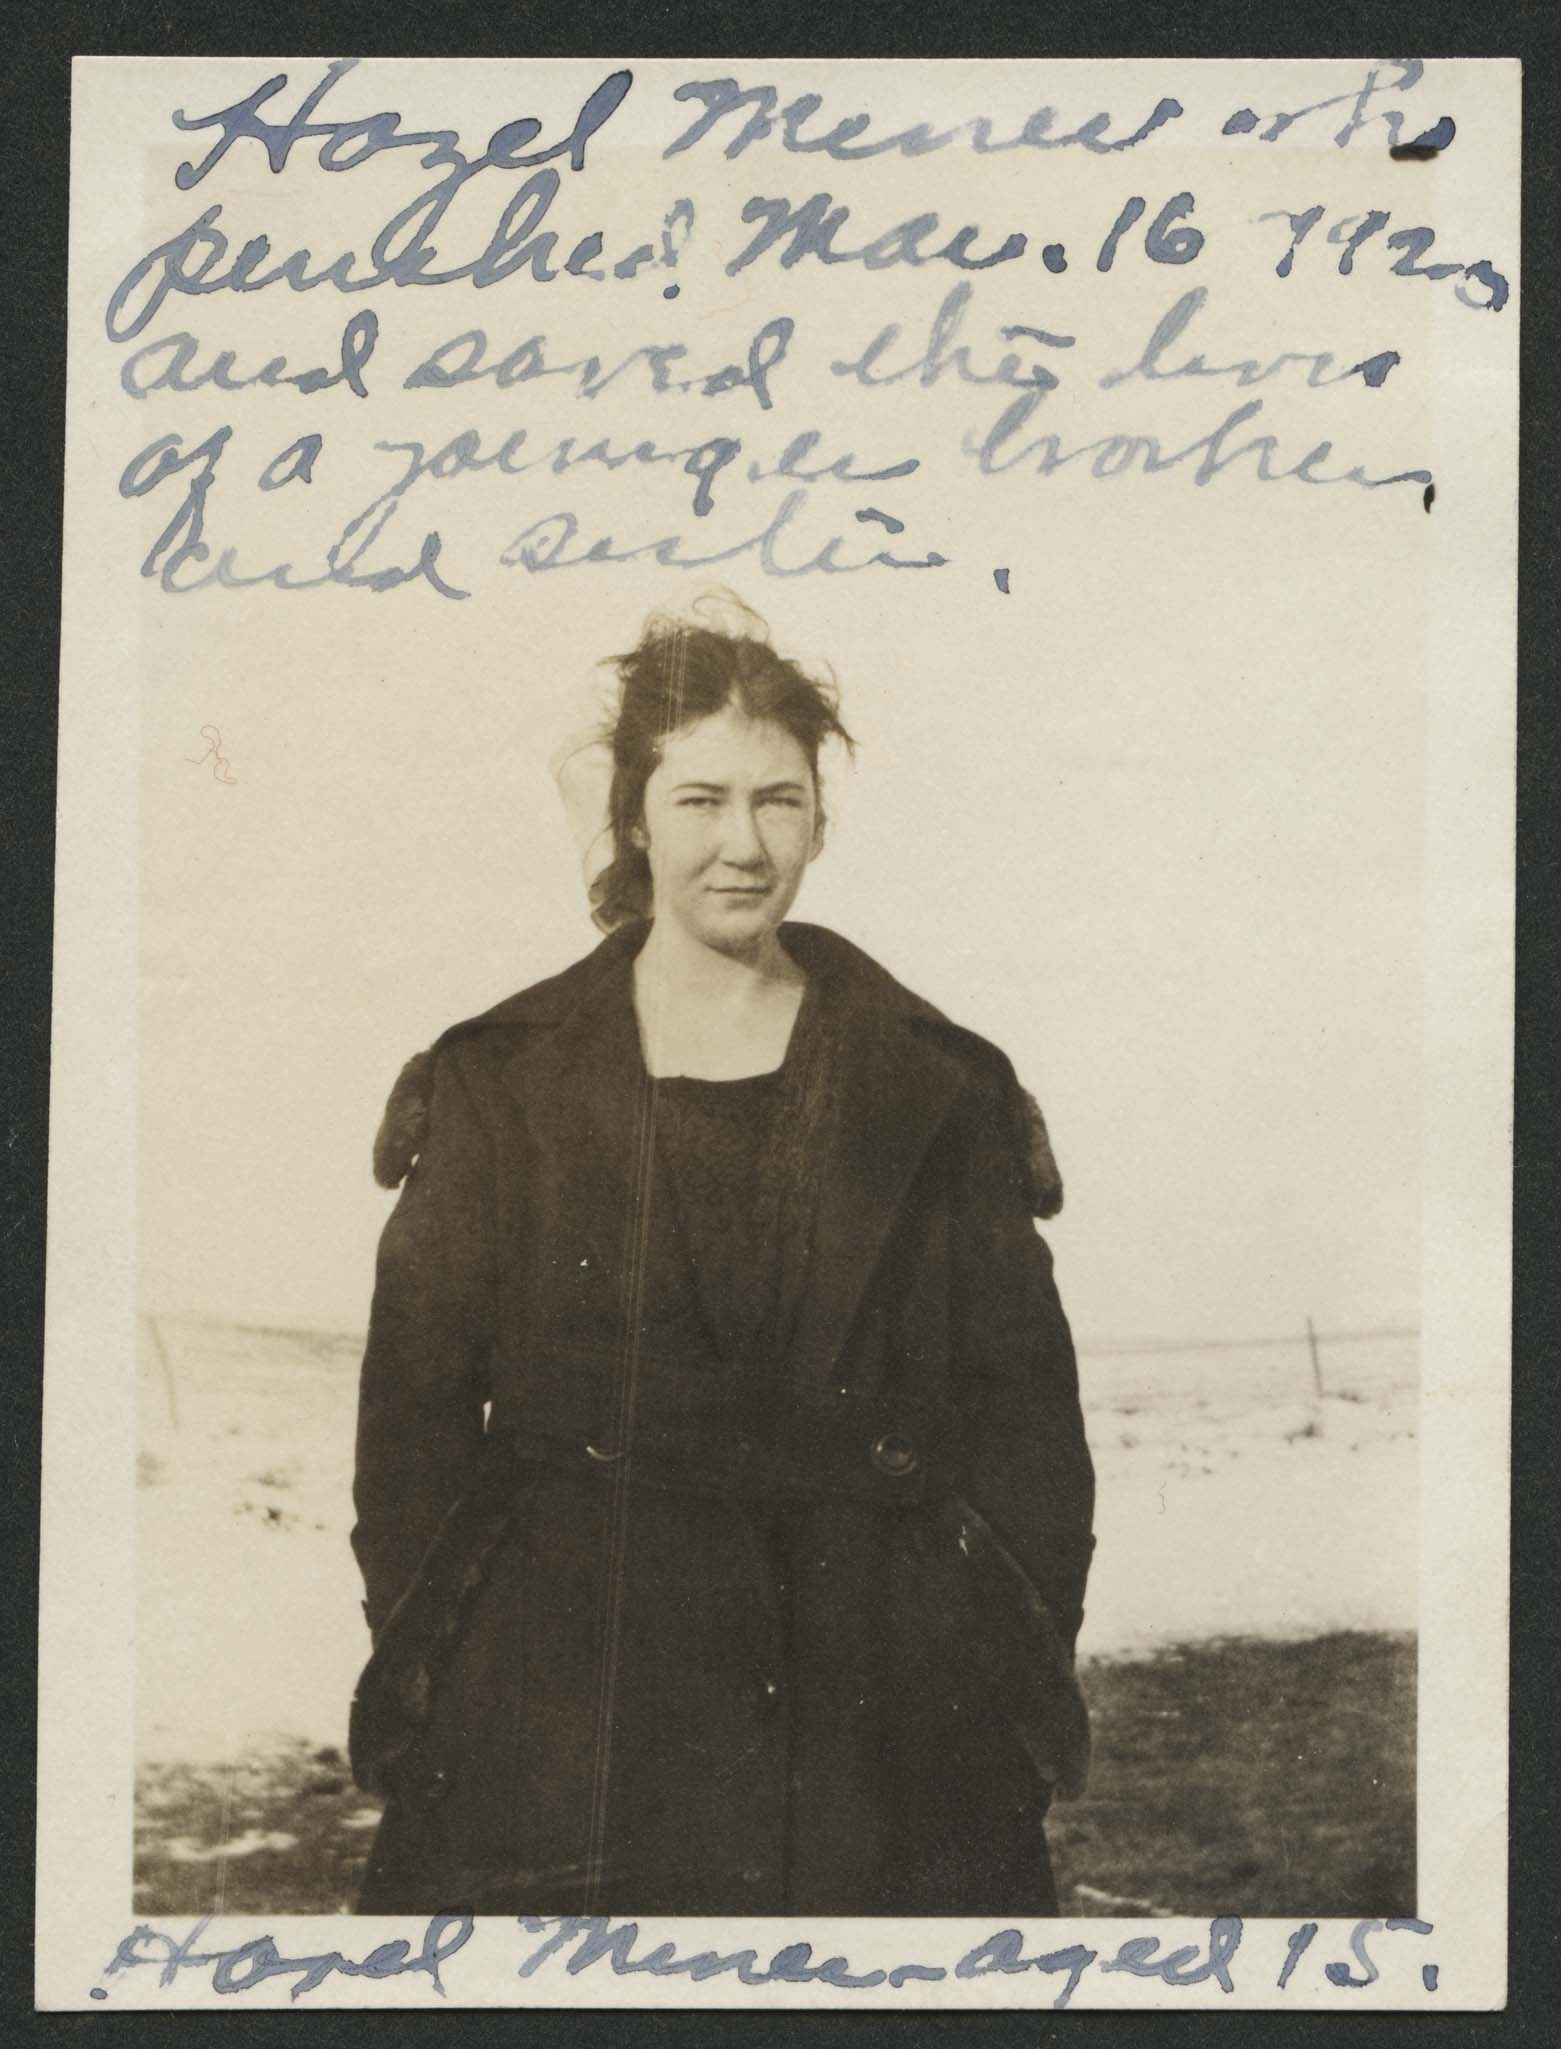 Hazel Miner who
perished Mar. 16 1920
and saved the lives
of a younger brother
and sister.
Hazel Miner - aged 15.